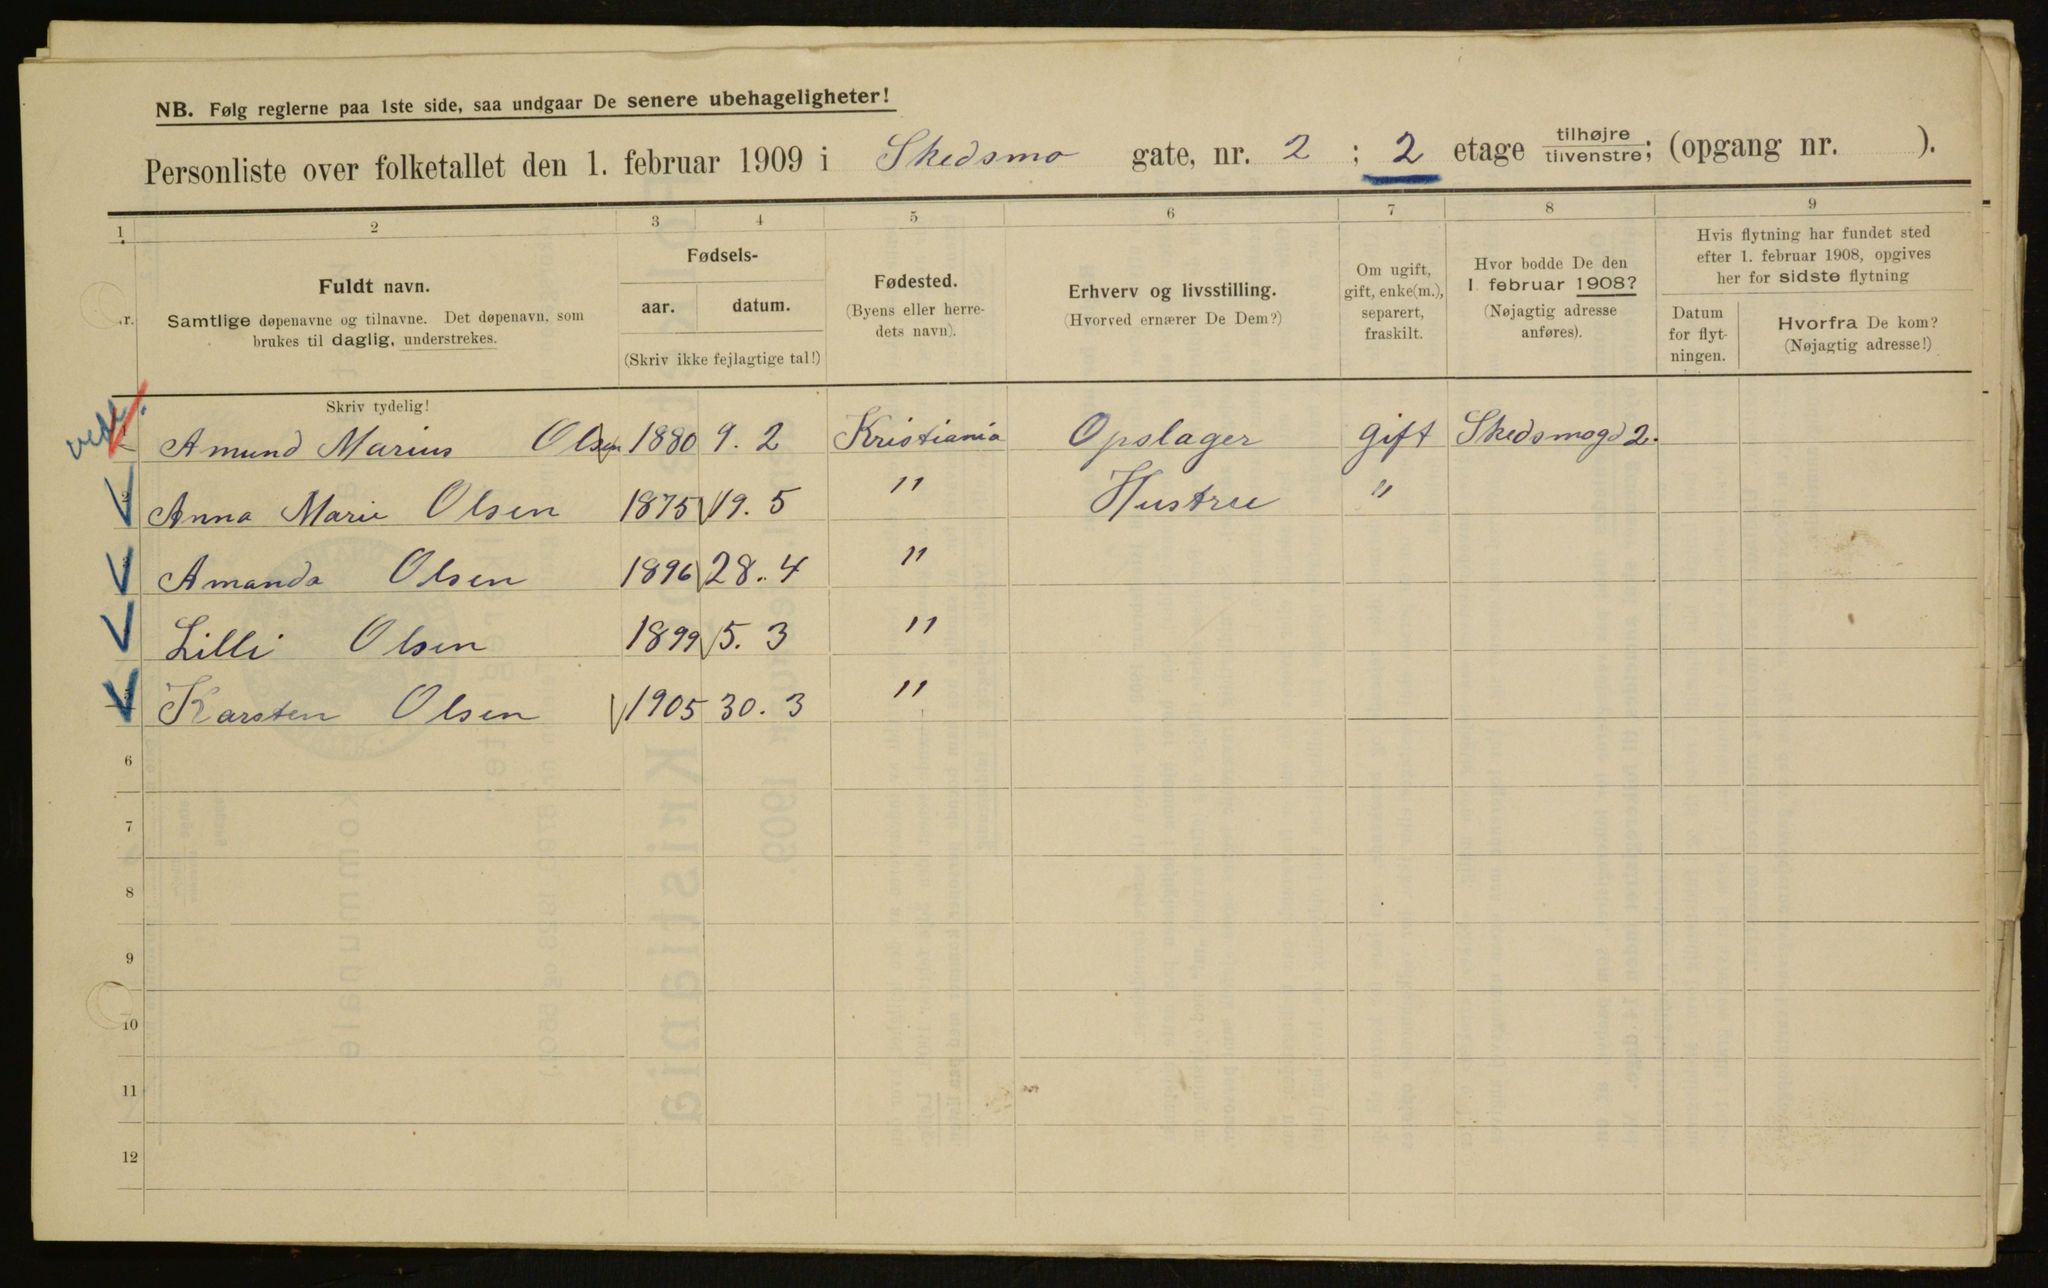 NB. Følg reglerne paa 1ste side, saa undgaar De senere ubehageligheter!
Personliste over folketallet den 1. februar 1909 i Skedsmo gate, nr. 2 ; 2 etage tilhøjre / tilvenstre ; (opgang nr. ).
1 2 3 4 5 6 7 8 9
Fuldt navn.
Samtlige døpenavne og tilnavne. Det døpenavn, som
brukes til daglig, understrekes.
Fødsels-
aar. datum.
(Skriv ikke fejlagtige tal!)
Fødested.
(Byens eller herre-
dets navn).
Erhverv og livsstilling.
(Hvorved ernærer De Dem?)
Om ugift,
gift, enke(m.),
separert,
fraskilt.
Hvor bodde De den
1 februar 1908?
(Nøjagtig adresse
anføres).
Hvis flytning har fundet sted
efter 1. februar 1908, opgives
her for sidste flytning
Datum
for flyt-
ningen.
Hvorfra De kom?
(Nøjagtig adresse!)
Skriv tydelig!
Amund Marius Olsen 1880 9. 2 Kristiania Opslager gift Skedsmogd 2.
Anna Marie Olsen 1875 19. 5 " Hustru "
Amanda Olsen 1896 28. 4 "
Lilli Olsen 1899 5. 3 "
Karsten Olsen 1905 30. 3 "
6
7
8
9
10
11
12